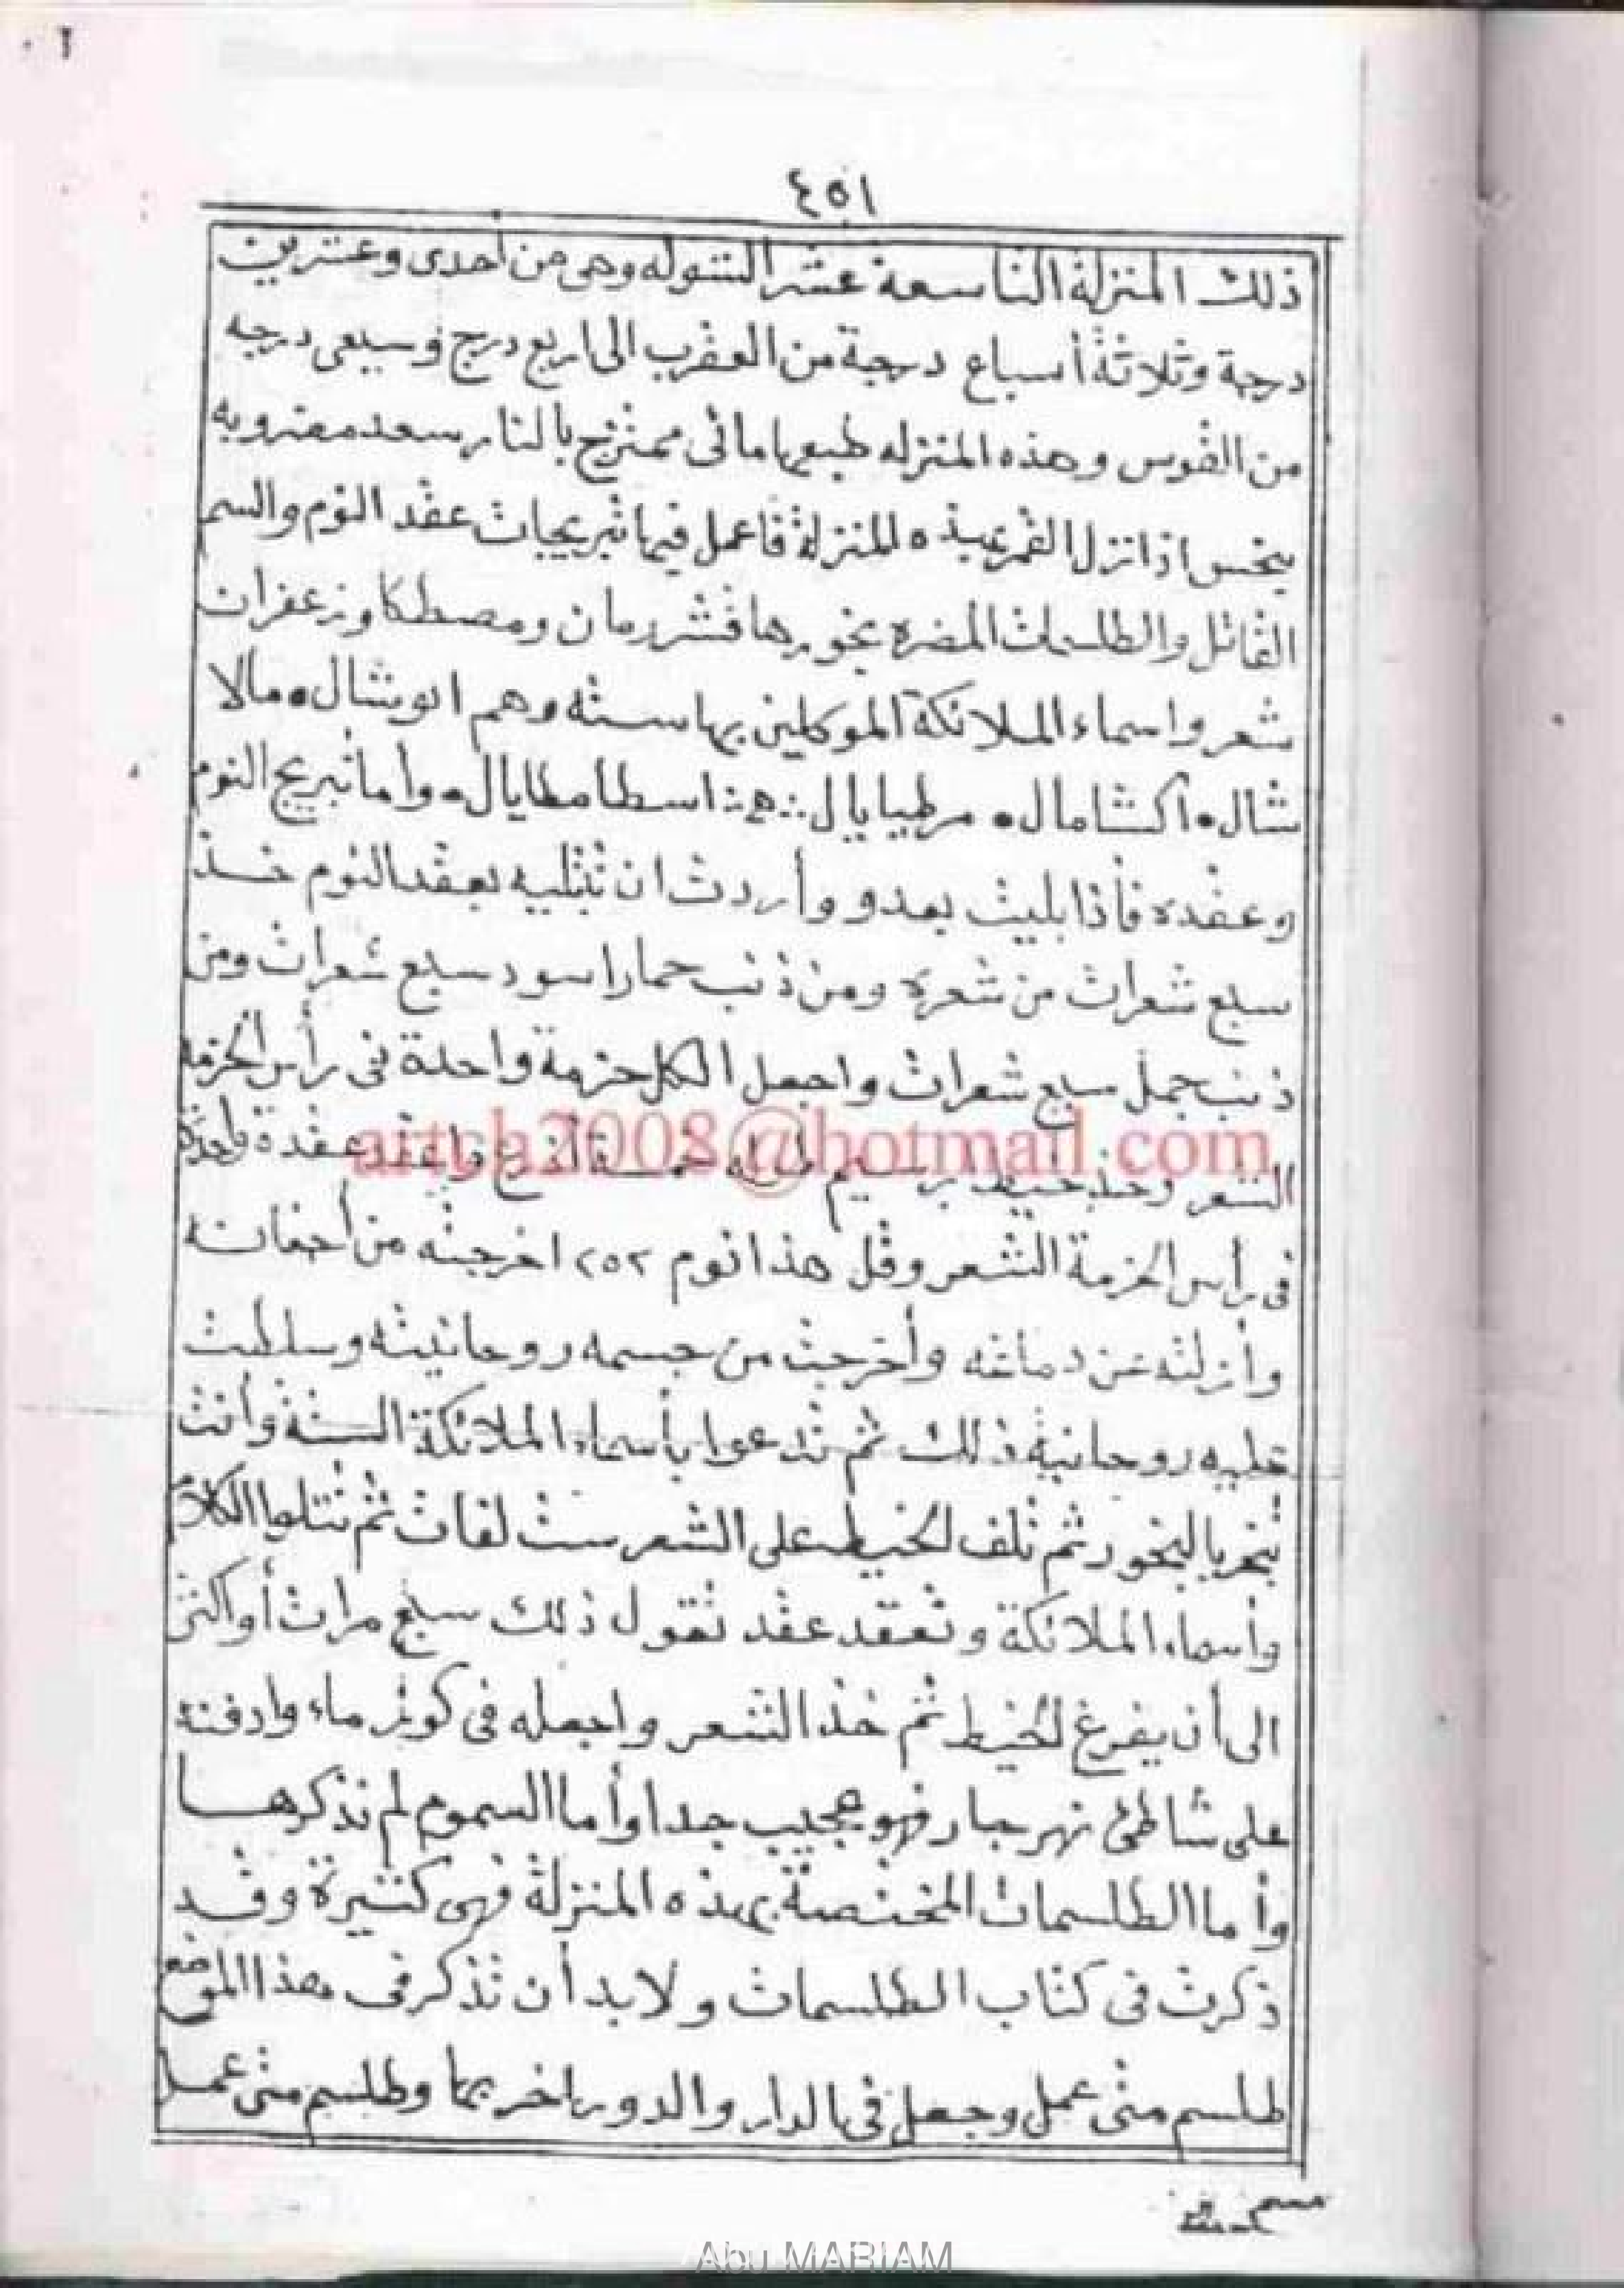 ٤٥١
ذلك المنزلة التاسعة عشر الشوله وهى من أحدى وعشرين
درجة وثلاثة أسباع درجة من العقرب الى اربع درج وسبعى درجه
من القوس وهذه المنزله طبعها مائى ممتزج بالنار سعد مقرو به
بنحس اذا نزل القمر بهذه المنزلة فاعمل فيها نيريجات عقد النوم والسم
القاتل والطلسمات المضره بخورها قشر رمان ومصطكا وزعفران
شعر واسماء الملائكة الموكلين بها سته وهم انوشال • مالا
شال • اكشامال • مرطيايال :: ه :: اسطامطايال • وأما نيريج النوم
وعقده فأذا بليت بعدو وأردت ان تبتليه بعقد النوم خذ
سبع شعرات من شعره ومن ذنب حمار اسود سبع شعرات ومن
ذنب جمل سبع شعرات واجعل الكل حزمة واحدة فى رأس الحزمه
الشعر وخذ خيط بريسيم طوله خمسة أذرع واعقد عقدة واحدة
فى رأس الحزمة الشعر وقل هذا نوم ٢٥٢ اخرجته من أجفانه
وأزلته عن دماغه وأخرجت من جسمه روحانيته وسلطت
عليه روحانية ذلك ثم تدعوا بأسماء الملائكة الستة وأنت
تبخر بالبخور ثم تلف الخيط على الشعر ست لفات ثم تتلوا الكلام
وأسماء الملائكة وتعقد عقد تقول ذلك سبع مرات أو اكثر
الى أن يفرغ الخيط ثم خذ الشعر واجعله فى كوز ماء وادفنه
على شاطئ نهر جار فهو عجيب جدا وأما السموم لم نذكرها
وأما الطلسمات المختصة بهذه المنزلة فهى كثيرة وقد
ذكرت فى كتاب الطلسمات ولابد أن نذكر فى هذا الموضع
طلسم متى عمل وجعل فى الدار والدور اخربها وطلسم متى عمل
artyh2008@hotmail.com
Abu MARIAM